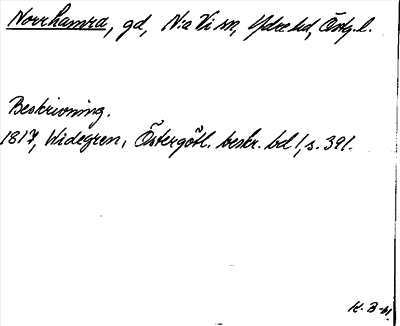 Norrhamra, gd, N:a Vi sn, Ydre hd, Östg. l.
Beskrivning.
1817, Widegren, Östergötl. beskr. bd 1, s. 391.
K. B-m